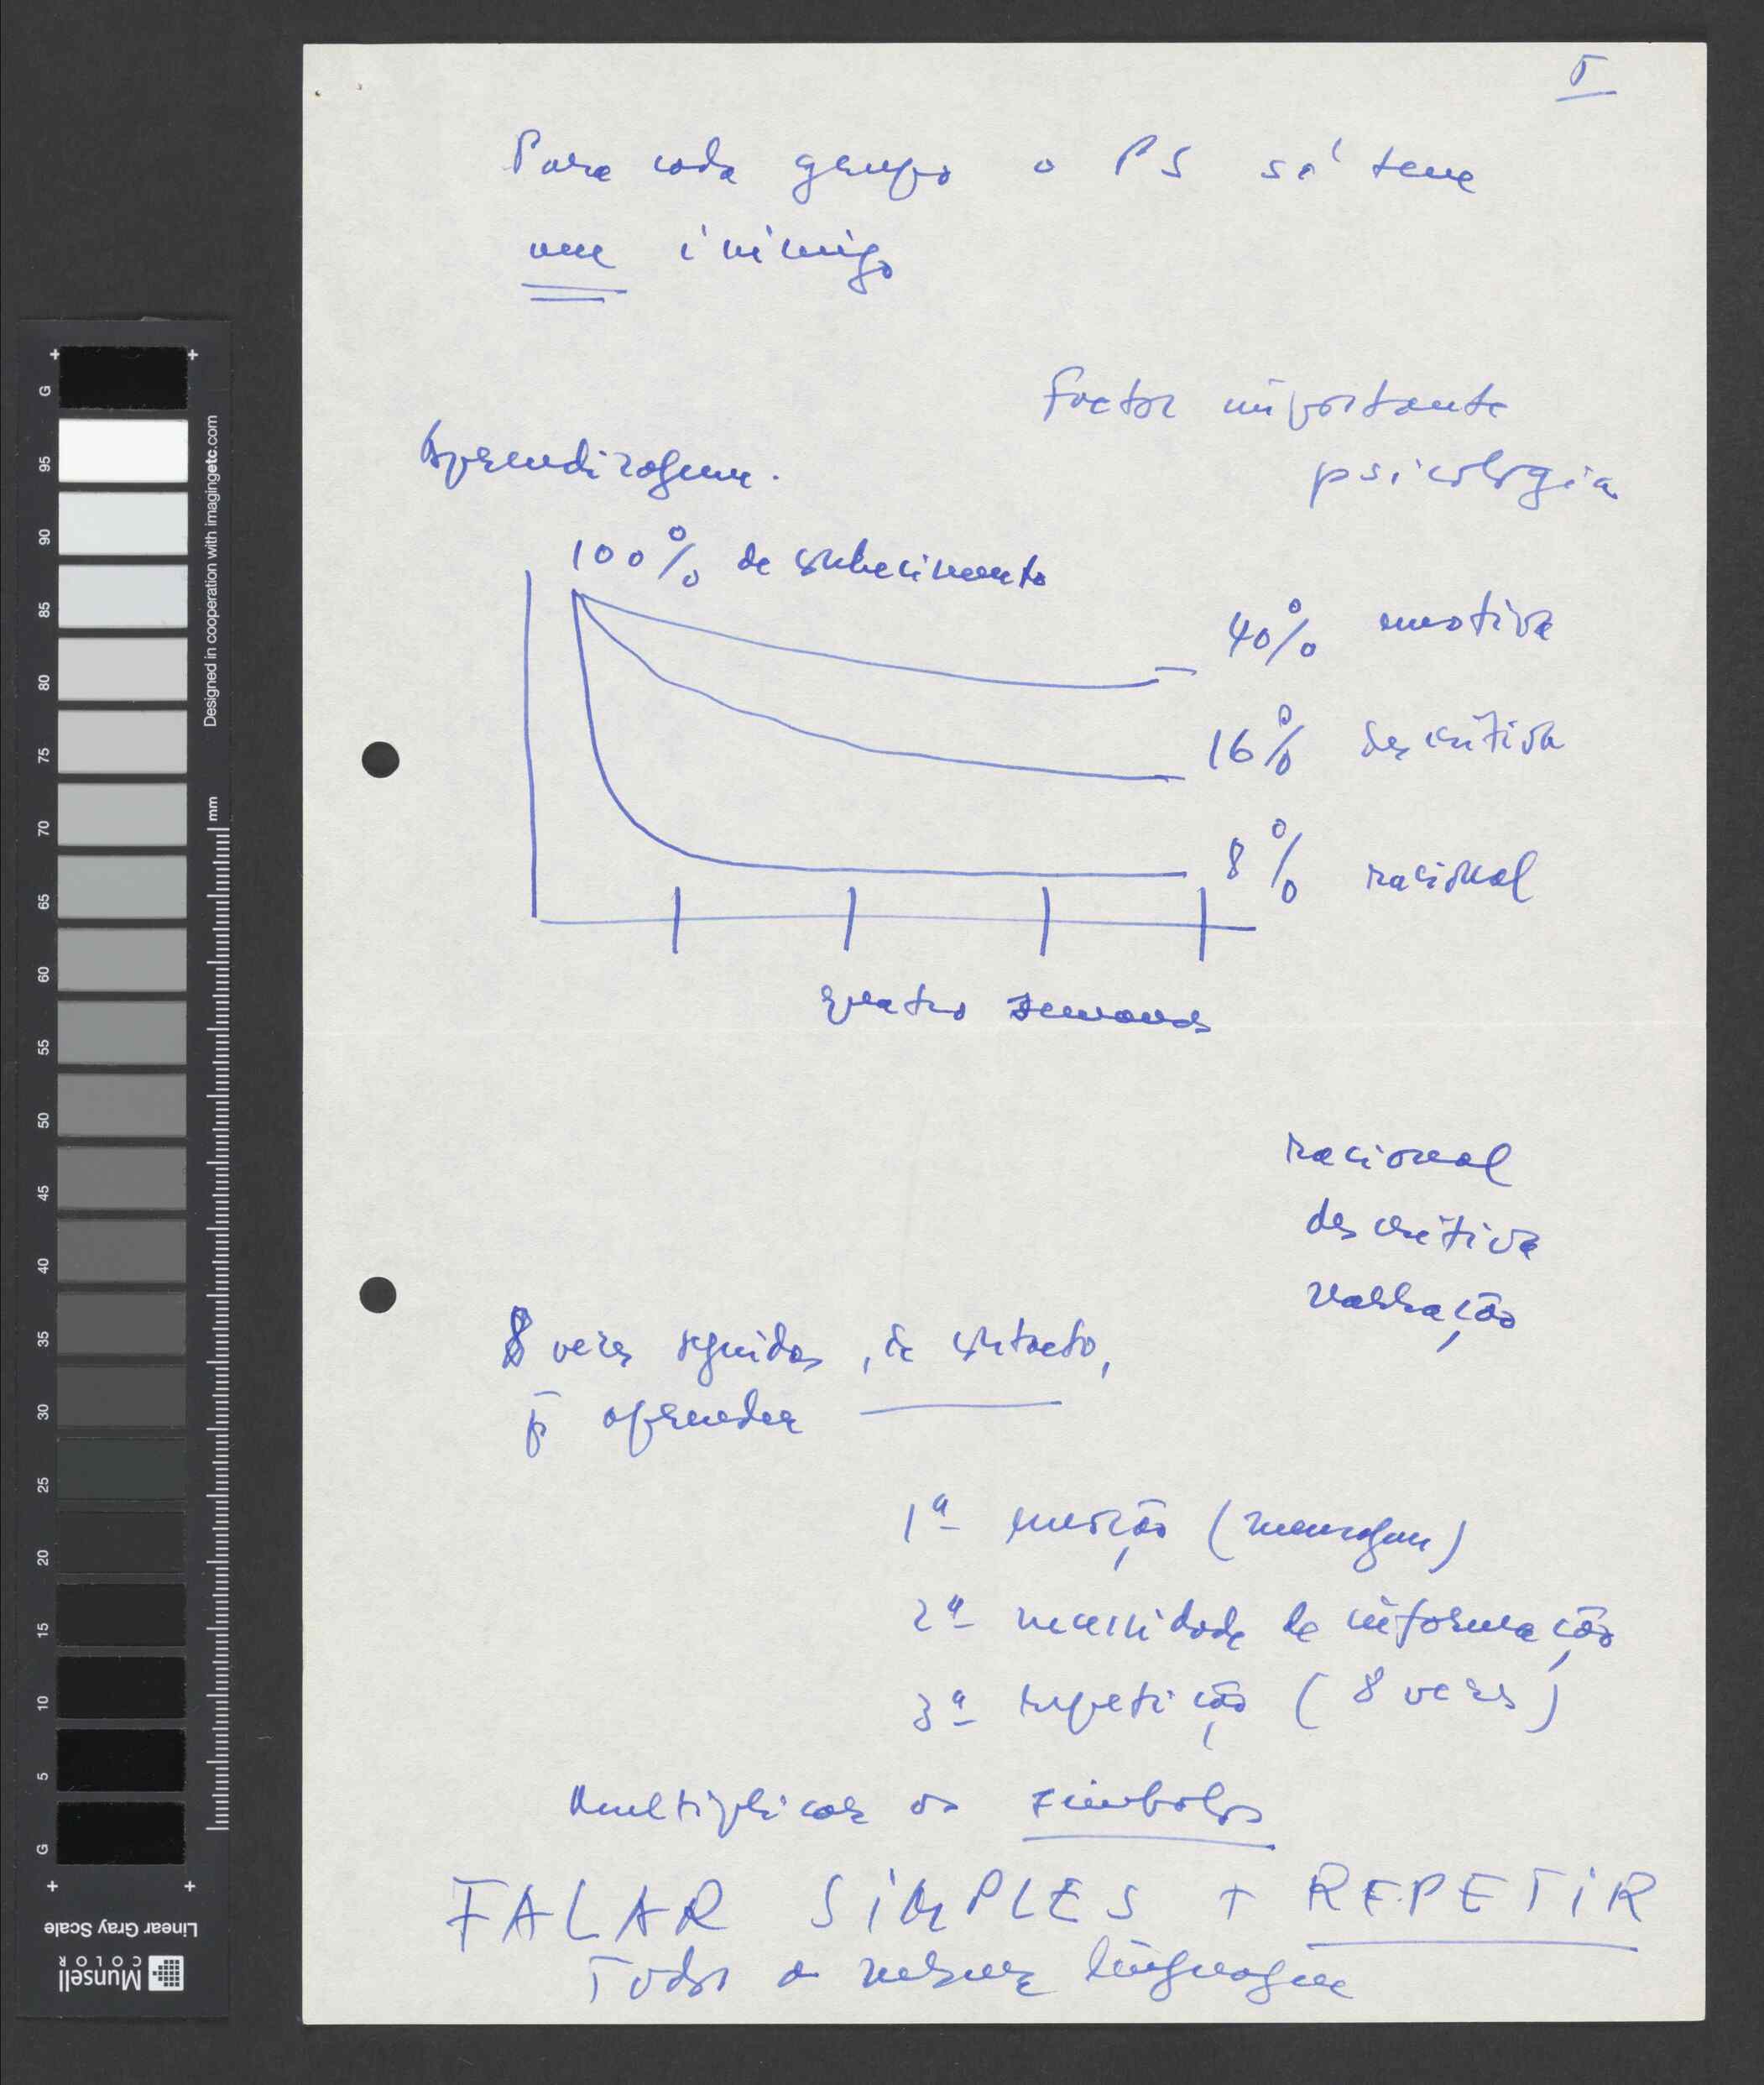 5
Para cada grupo o PS só tem
um inimigo
Factor importante
psicologia
Aprendizagem.
100% de conhecimento
40% emotiva
16% descritiva
8% racional
quatro semanas
racional
descritiva
narração
8 vezes seguidas, de contacto,
p aprender
1ª emoção (mensagem)
2ª necessidade de informação
3ª repetição (8 vezes)
Multiplicar os símbolos
FALAR SIMPLES + REPETIR
Todos a mesma linguagem
G 95 90 85 80 75 70 65 60 55 50 45 40 35 30 25 20 15 10 5 G
Designed in cooperation with imagingetc.com
mm
Linear Gray Scale
Munsell
COLOR